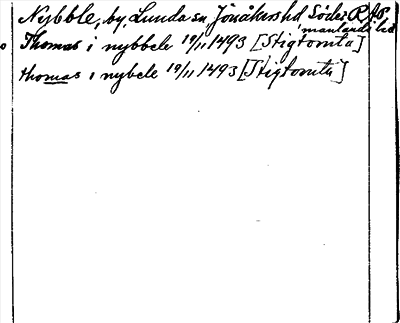 Nybble, by, Lunda sn Jönåkers hd Söder RAP,
manlands län
o Thomas i nybbele 19/11 1493 [Stigtomta]
thomas i nybele 19/11 1493 [Stigtomta]